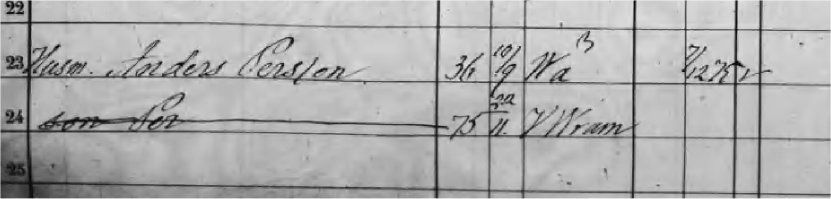 22
23 Husm. Anders Persson 36 10/9 Wa B 7/12 75 v
24 son Per 75 22/11 V Wram
25